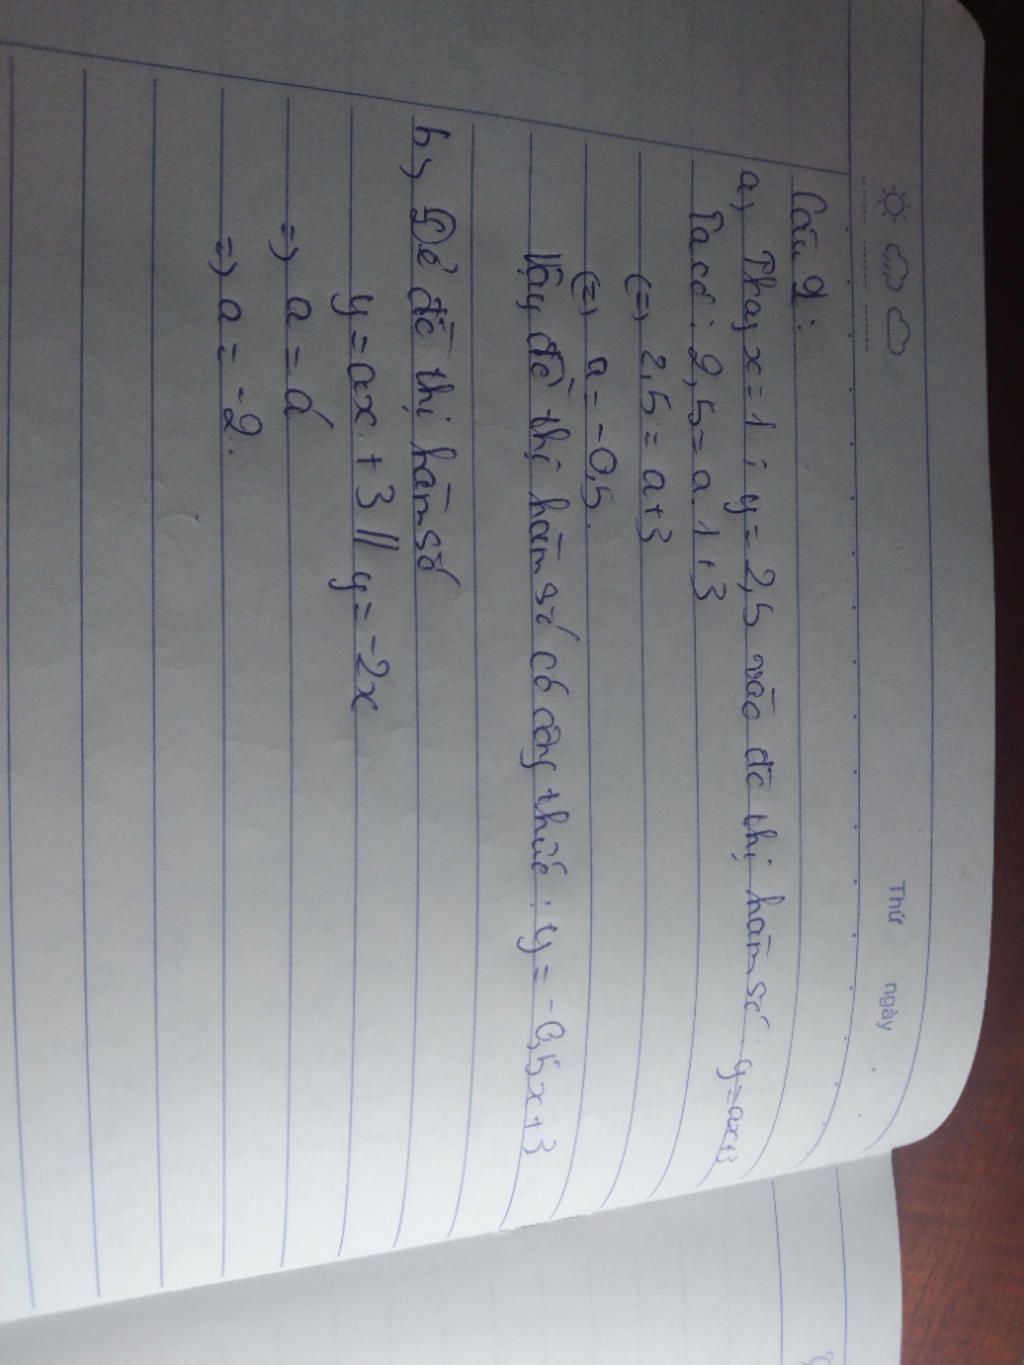 Thứ
ngày
Câu 9:
a, Thay x=1; y=2,5 vào đồ thị hàm số: y=ax+3
Ta có: 2,5=a.1+3
(=) 2,5=a+3
(=) a=-0,5.
Vậy đồ thị hàm số có công thức: y=-0,5x+3
b, Để đồ thị hàm số
y=ax+3 // y=-2x
=) a=á
=) a=-2.